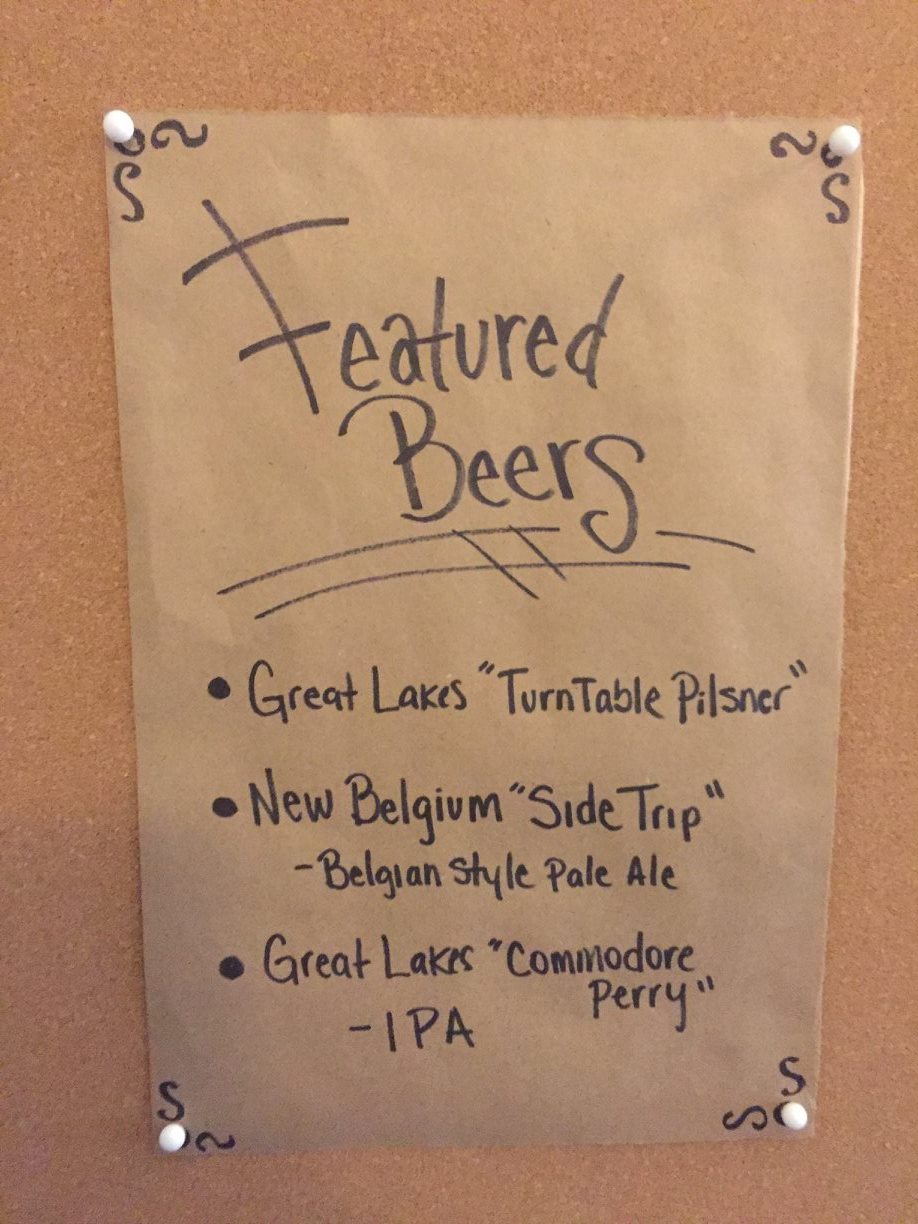 Featured
Beers
• Great Lakes "TurnTable Pilsner"
• New Belgium "Side Trip"
- Belgian Style Pale Ale
• Great Lakes "Commodore
Perry"
- IPA